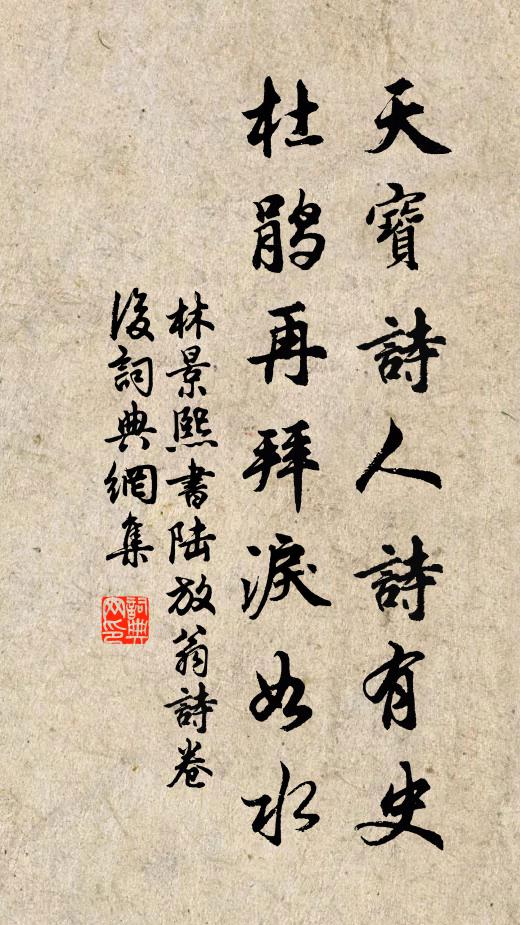 天寶詩人詩有史
杜鵑再拜淚如水
林景熙書陸放翁詩卷
後詞典網集
詞典
网印